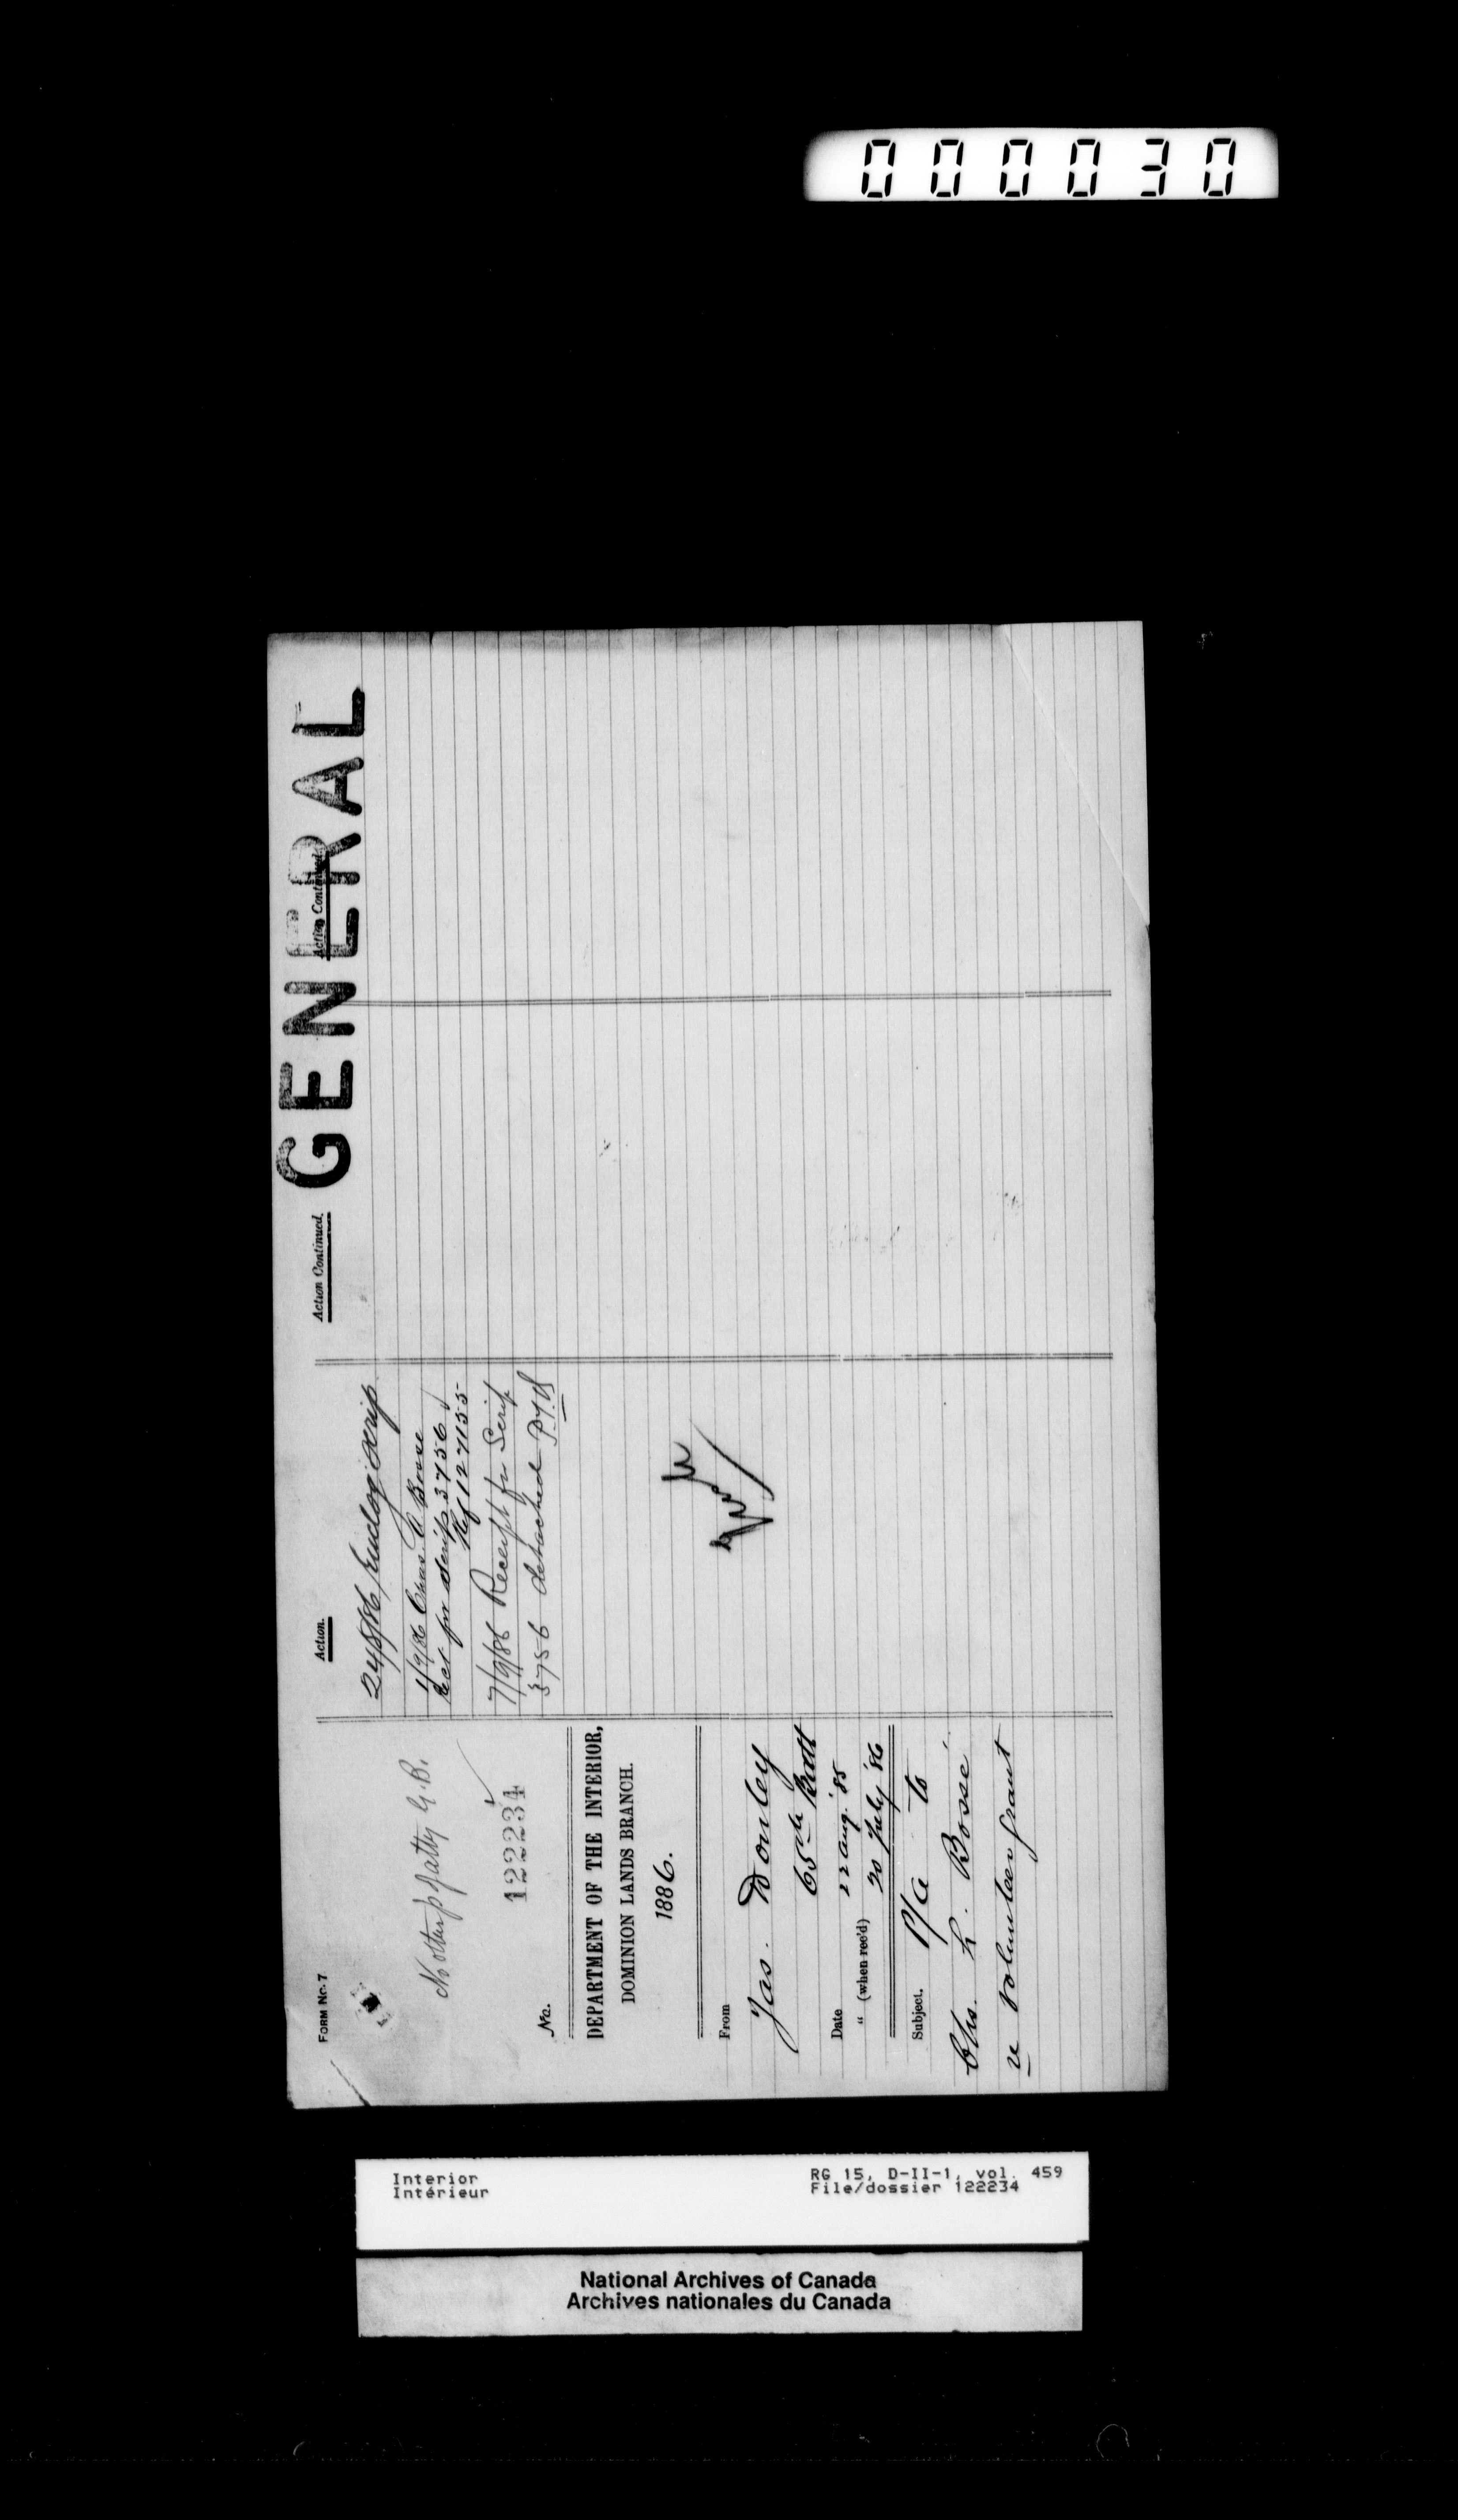 000030
GENERAL
FORM No. 7
No other p. Patty G.B.
122234
No.
DEPARTMENT OF THE INTERIOR,
DOMINION LANDS BRANCH.
1886.
From
Jas. Donley
65th Batt
Date 22 Aug. '85
" (when rec'd) 20 July '86
Subject. P/A to
Chs. h. Bossé
re volunteer grant
Action.
24/8/86 scrip
1/9/86 Chas. Bosse
Rect for scrip 3756
Ref 127155
7/9/86 Receipt for Scrip
3756 detached
Action Continued.
Action Continued.
Interior
Intérieur
RG 15, D-II-1, vol. 459
File/dossier 122234
National Archives of Canada
Archives nationales du Canada